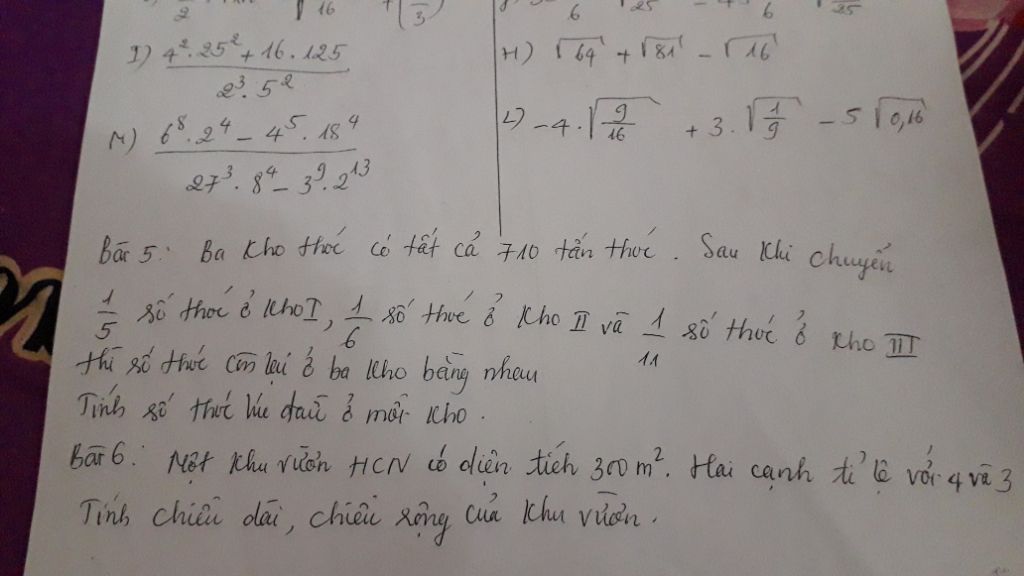 I) 4².25² + 16.125 / 2³.5²
H) √64 + √81 - √16
M) 6⁸.2⁴ - 4⁵.18⁴ / 27³.8⁴ - 3⁹.2¹³
L) -4.√(9/16) + 3.√(1/9) - 5√0,16
Bài 5: Ba kho thóc có tất cả 710 tấn thóc. Sau khi chuyển
1/5 số thóc ở kho I, 1/6 số thóc ở kho II và 1/11 số thóc ở kho III
thì số thóc còn lại ở ba kho bằng nhau
Tính số thóc lúc đầu ở mỗi kho.
Bài 6: Một khu vườn HCN có diện tích 300 m². Hai cạnh tỉ lệ với 4 và 3
Tính chiều dài, chiều rộng của khu vườn.